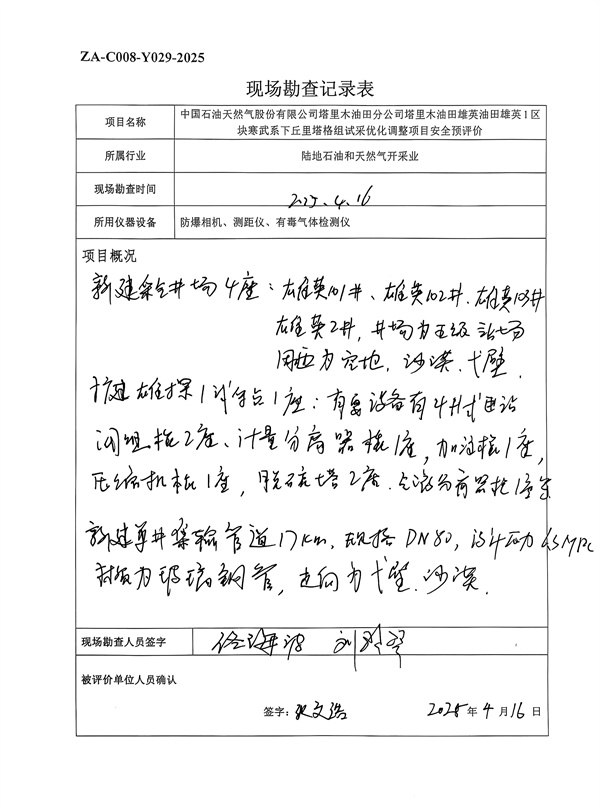 ZA-C008-Y029-2025
现场勘查记录表
项目名称
中国石油天然气股份有限公司塔里木油田分公司塔里木油田雄英油田雄英1区
块寒武系下丘里塔格组试采优化调整项目安全预评价
所属行业
陆地石油和天然气开采业
现场勘查时间
2025.4.16
所用仪器设备
防爆相机、测距仪、有毒气体检测仪
项目概况
新建 井场4座：雄英101井、雄英102井、雄英103井
雄英2井，井场为五级站场
周围为空地，沙漠、戈壁
扩建雄探1试采点1座：有 设备有
阀组橇2座、计量分离器橇1座，加 橇1座，
压缩机橇1座，脱硫塔2座、 分离器橇1座等
新建单井集输管道17km，规格DN80，设计压力 MPa
材质为玻璃钢管，走向为戈壁、沙漠。
现场勘查人员签字
海
刘
被评价单位人员确认
签字： 文浩
2025年4月16日